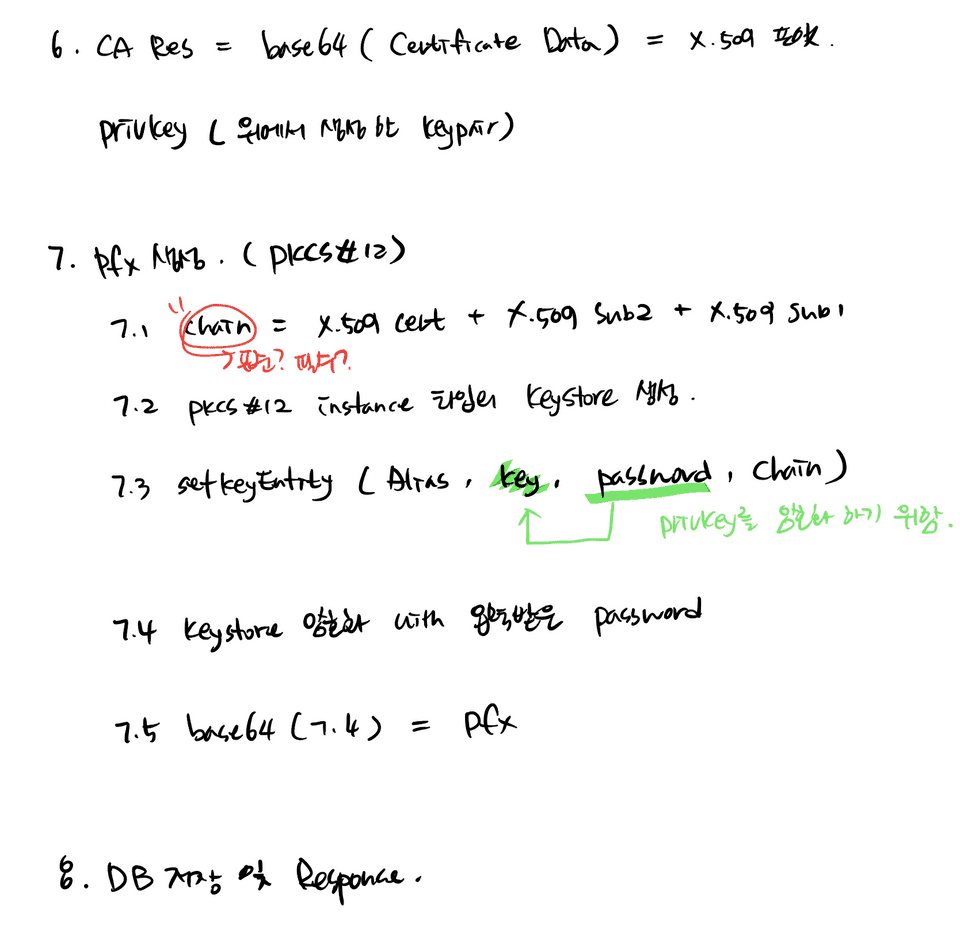 6. CA Res = base64 ( Certificate Data ) = X.509 포맷.
privkey ( 위에서 생성한 keypair )
7. pfx 생성. ( PKCS#12 )
7.1 "chain" = X.509 cert + X.509 Sub2 + X.509 Sub1
→ 표준? 필수?
7.2 PKCS#12 instance 타입의 keystore 생성.
7.3 setkeyEntity ( Alias, key, password, chain )
privkey를 암호화 하기 위함.
7.4 keystore 암호화 with 입력받은 password
7.5 base64 ( 7.4 ) = pfx
8. DB 저장 및 Response.